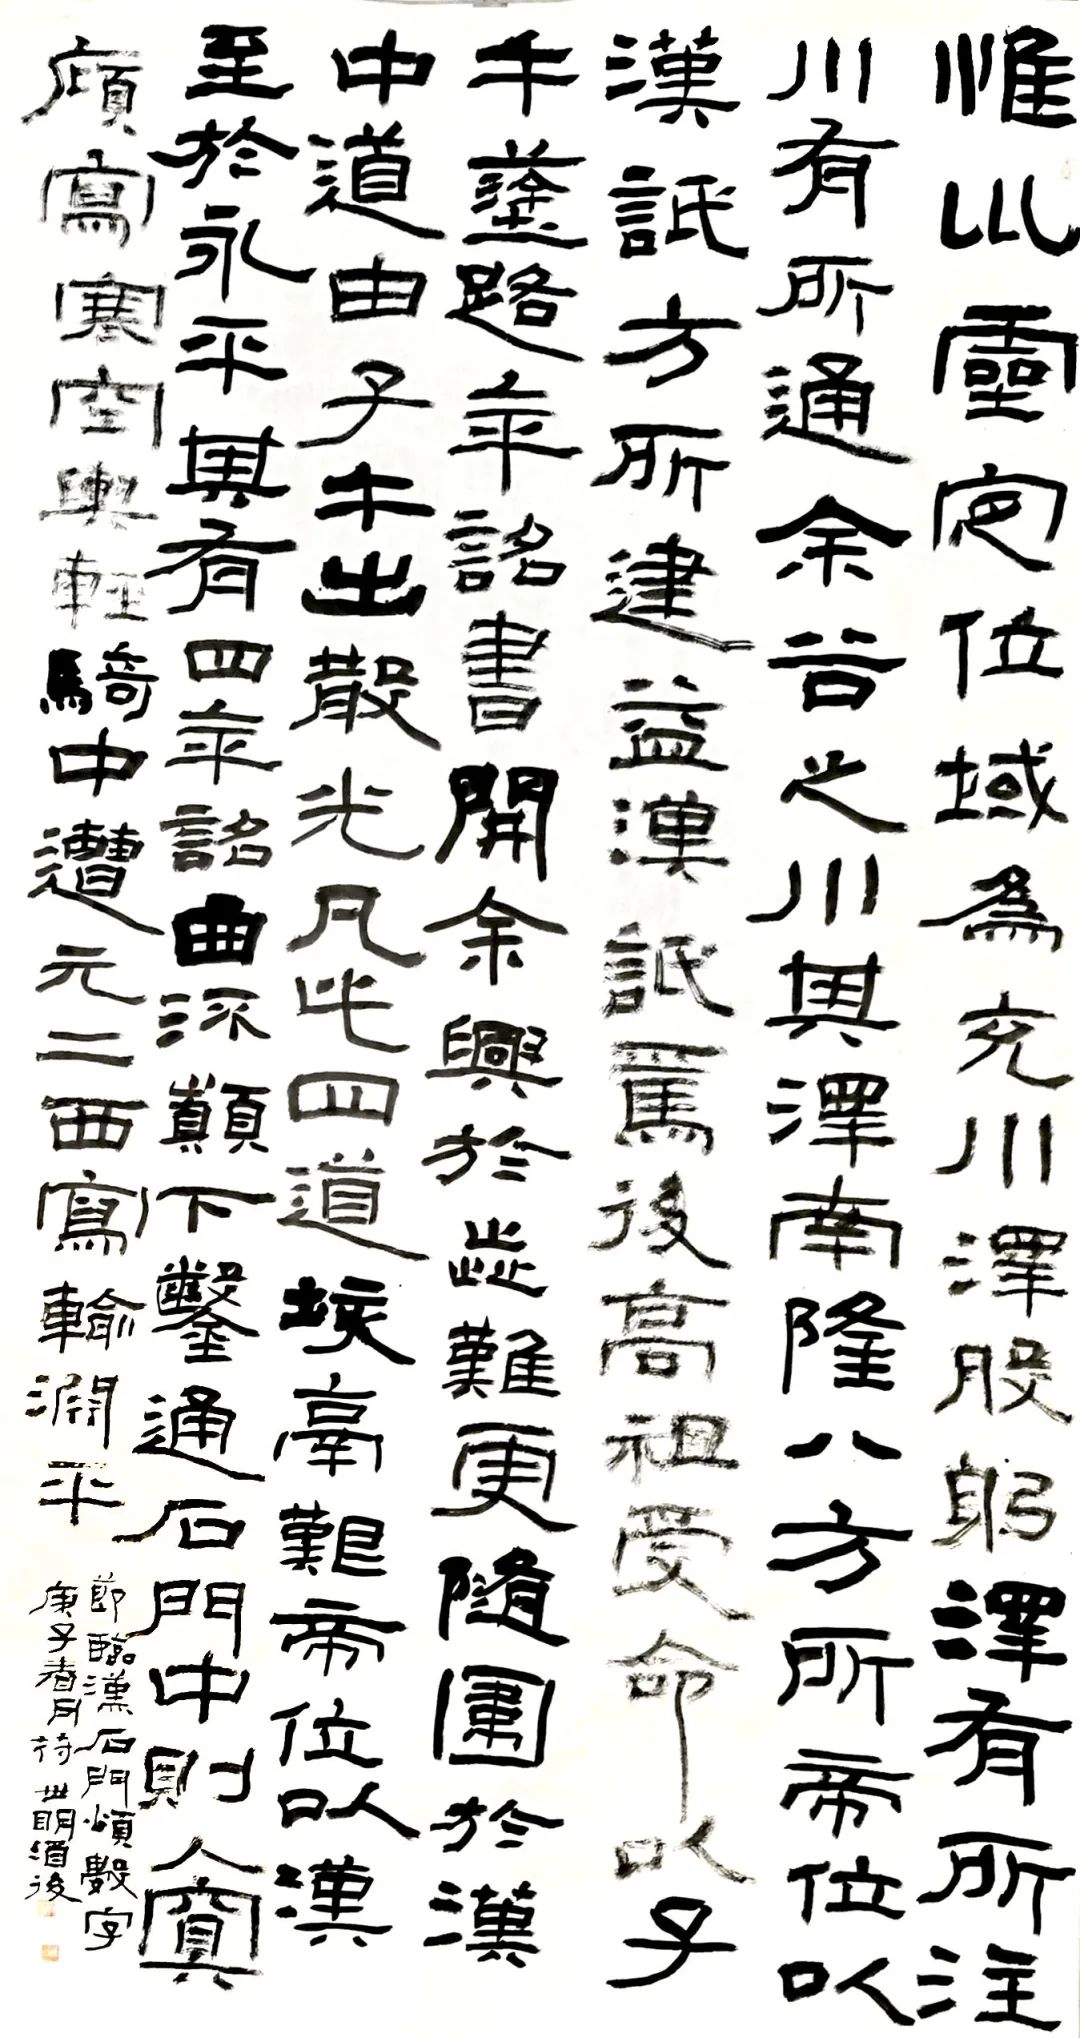 惟㘴靈定位域為充川澤股躬澤有所注
川有所通余谷之川其澤南隆八方所帝位以
漢詆方所建益漢詆焉後高祖受命以子
午塗路年詔書開余興於此難更隨圍於漢
中道由子午出散光凡此四道垓鬲艱帝位以漢
至於永平其有四年詔曲添顛下鑿通石門中則寘
廎寫寒空輿輕騎中遭元二西寫輸淵平
節臨漢石門頌數字
庚子春月 世明酒後